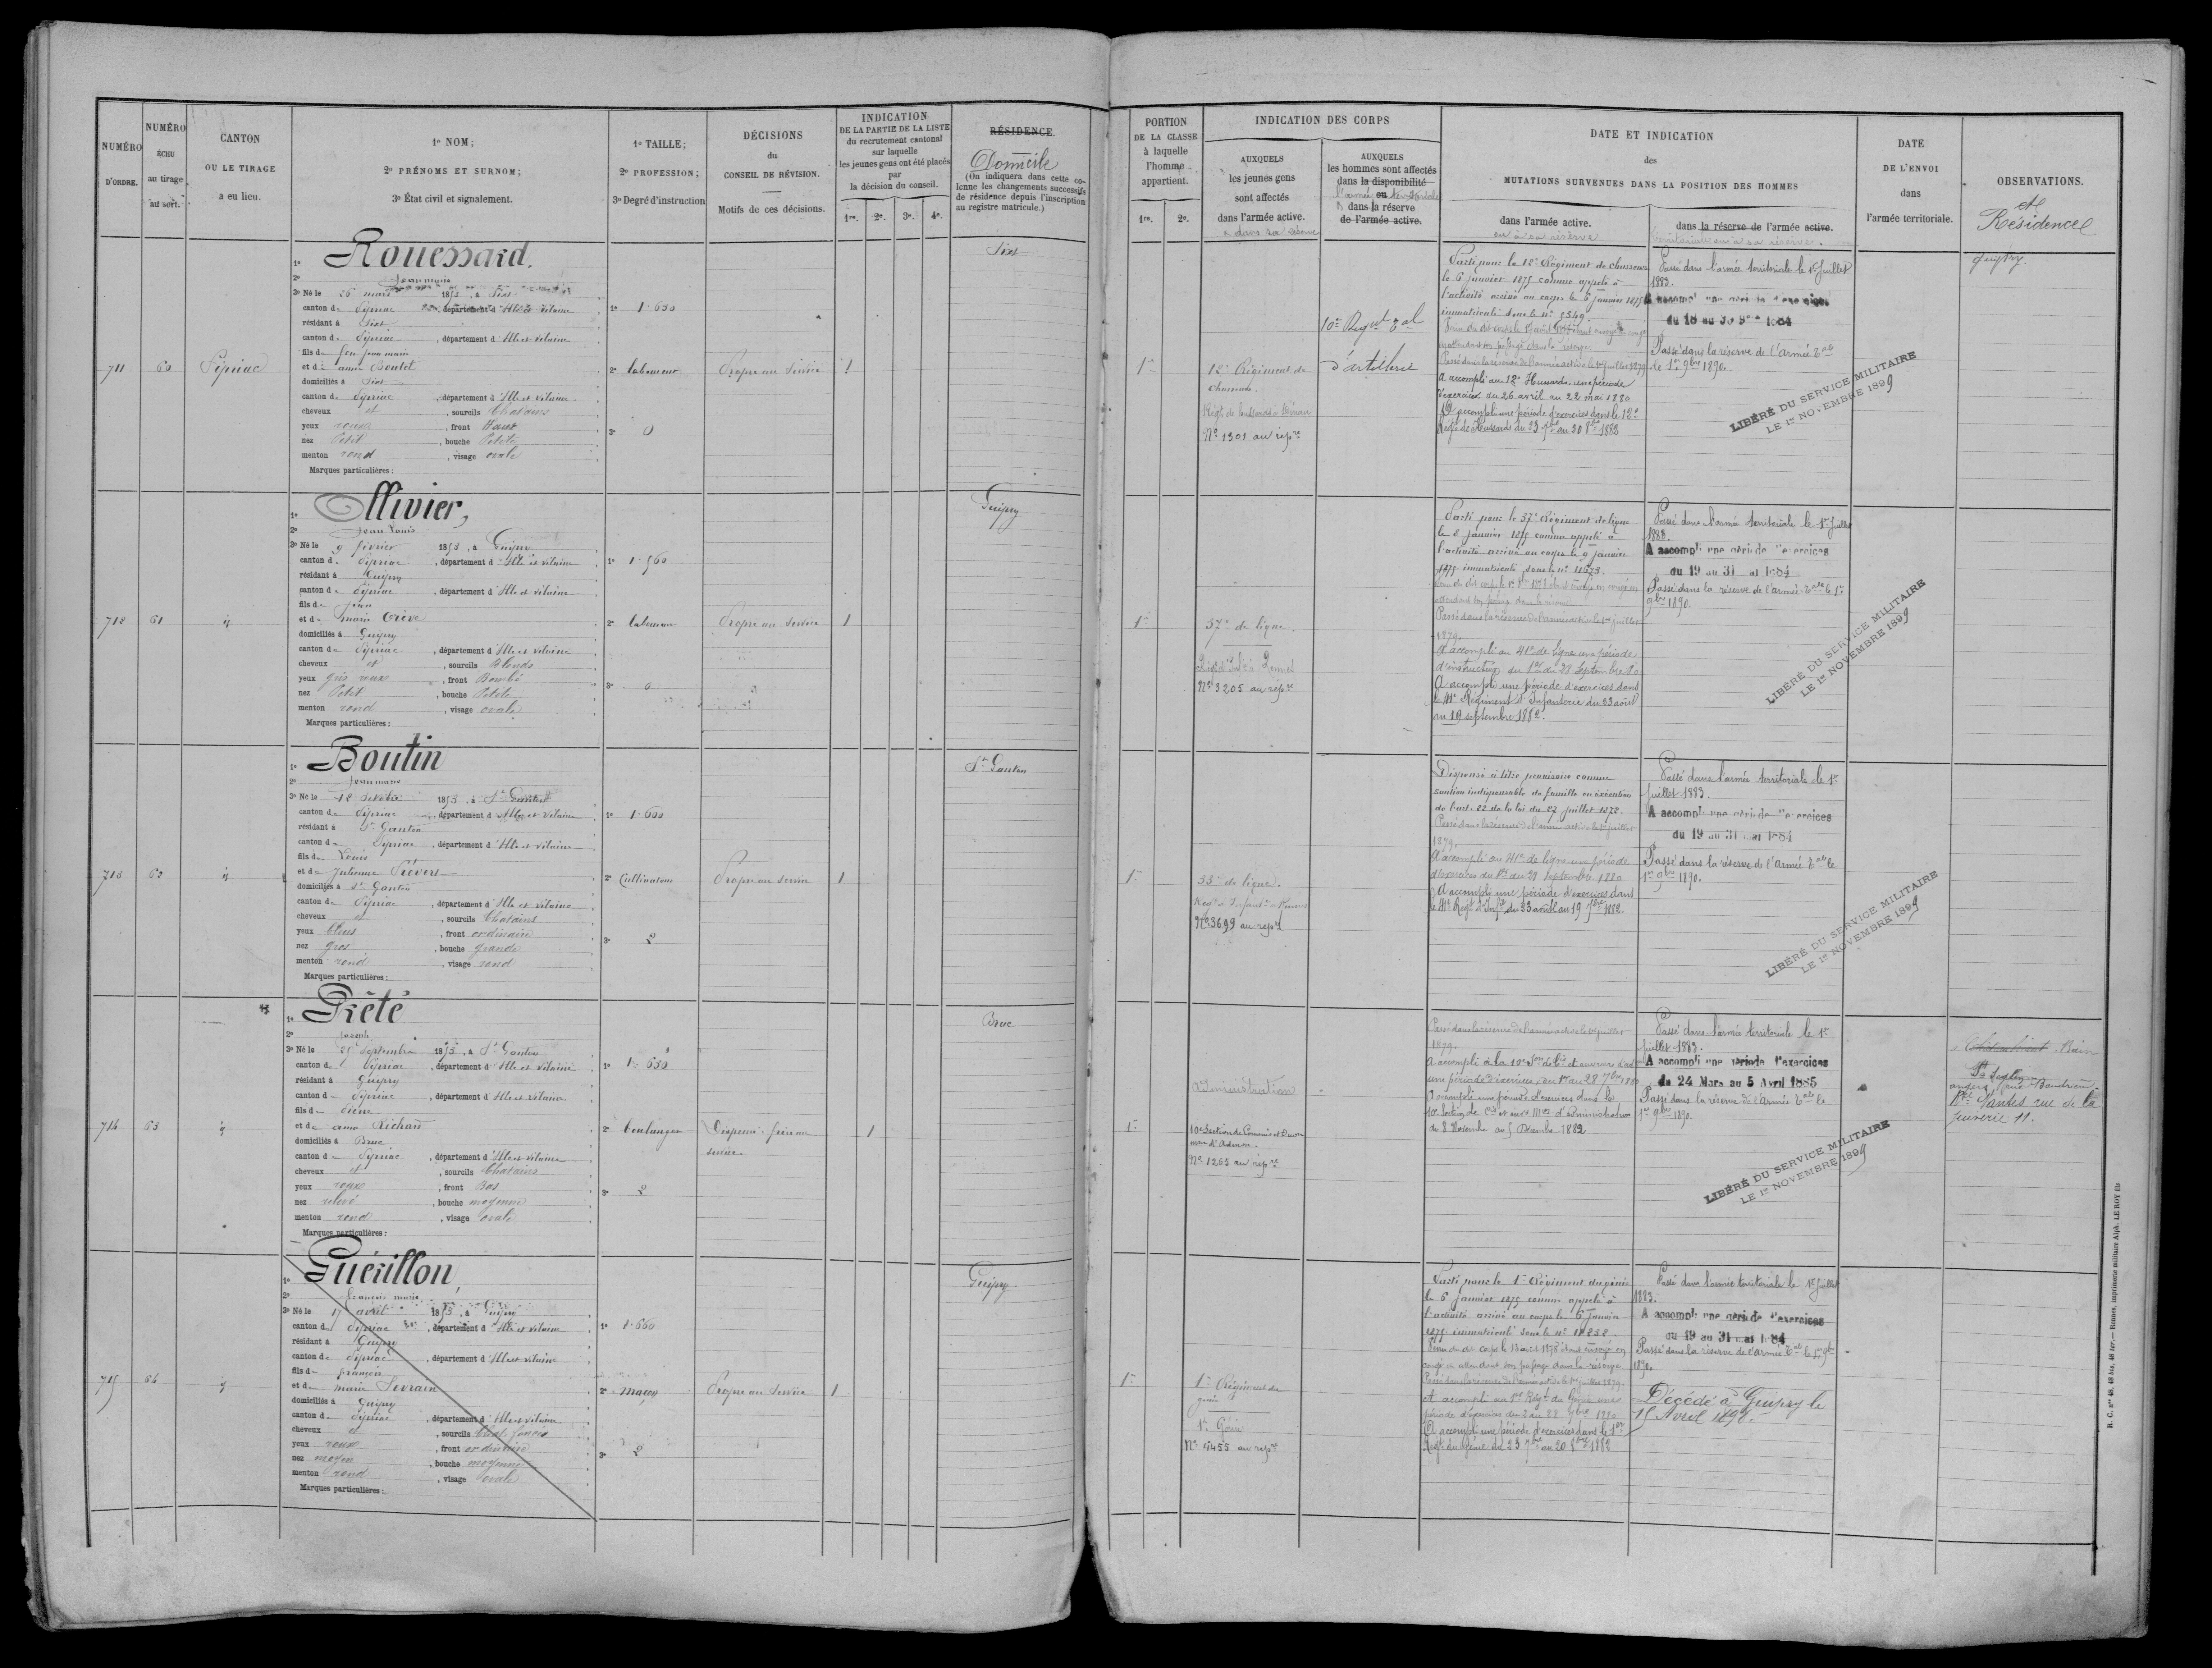 NUMÉRO D'ORDRE.
NUMÉRO ÉCHU au tirage au sort.
CANTON OU LE TIRAGE a eu lieu.
1º NOM;
2º PRÉNOMS ET SURNOM;
3º État civil et signalement.
1º TAILLE;
2º PROFESSION;
3º Degré d'instruction
DÉCISIONS du CONSEIL DE RÉVISION.
Motifs de ces décisions.
INDICATION
DE LA PARTIE DE LA LISTE
du recrutement cantonal
sur laquelle
les jeunes gens ont été placés
par
la décision du conseil.
1re. 2e. 3e. 4e.
RÉSIDENCE.
Domicile
(On indiquera dans cette co-
lonne les changements successifs
de résidence depuis l'inscription
au registre matricule.)
PORTION
DE LA CLASSE
à laquelle
l'homme
appartient.
1re. 2e.
INDICATION DES CORPS
AUXQUELS
les jeunes gens
sont affectés
dans l'armée active.
AUXQUELS
les hommes sont affectés
dans la disponibilité
ou
dans la réserve
de l'armée active.
DATE ET INDICATION
des
MUTATIONS SURVENUES DANS LA POSITION DES HOMMES
dans l'armée active.
ou à sa réserve
dans la réserve de l'armée active.
territoriale ou à sa réserve.
DATE
DE L'ENVOI
dans
l'armée territoriale.
OBSERVATIONS.
et
Résidence
711
60
Pipriac
1º Rouessard.
2º Jean marie
3º Né le 26 mars 1853, à Sixt
canton de Pipriac, département d'Ille et Vilaine
résidant à Sixt
canton de Pipriac, département d'Ille et Vilaine
fils de feu jean marie
et de anne Boutet
domiciliés à Sixt
canton de Pipriac, département d'Ille et Vilaine
cheveux et, sourcils Chatains
yeux roux, front Haut
nez Petit, bouche Petite
menton rond, visage ovale
Marques particulières:
1º 1.650
2º laboureur
3º 0
Propre au service
1
Sixt
1re
12e Régiment de
chasseurs
Nº 1301 au rép.re
10me Régnt Tal
d'artillerie
Parti pour le 12e Régiment de chasseurs
le 6 janvier 1875 comme appelé à
l'activité arrivé au corps le 6 janvier 1875
Passé dans la réserve de l'armée active le 1er juillet 1879
A accompli au 12e Hussards une période
d'exercices du 26 avril au 22 mai 1880
A accompli une période d'exercices dans le 12e
Régt de Hussards du 23 7bre au 20 8bre 1882
Passé dans l'armée territoriale le 1er Juillet
1883.
A accompli une période d'exercices
du 18 au 30 9bre 1884
Passé dans la réserve de l'Armée Tale
le 1er 9bre 1890.
LIBÉRÉ DU SERVICE MILITAIRE
LE 1er NOVEMBRE 1899
Guipry.
712
61
id
1º Ollivier,
2º Jean Louis
3º Né le 9 février 1853, à Guipry
canton de Pipriac, département d'Ille et Vilaine
résidant à Guipry
canton de Pipriac, département d'Ille et Vilaine
fils de Jean
et de marie Crève
domiciliés à Guipry
canton de Pipriac, département d'Ille et Vilaine
cheveux et, sourcils Blonds
yeux gris roux, front Bombé
nez Petit, bouche Petite
menton rond, visage ovale
Marques particulières:
1º 1.560
2º laboureur
3º 0
Propre au service
1
Guipry
1re
37e de ligne.
Nº 3205 au rép.re
Parti pour le 37e Régiment de ligne
le 8 janvier 1875 comme appelé à
l'activité arrivé au corps le 9 janvier
1875 immatriculé sous le nº 11673.
Passé dans la réserve de l'armée active le 1er juillet
1879.
A accompli au 41e de ligne une période
d'instruction du 1er au 28 septembre 80
A accompli une période d'exercices dans
le 41e Régiment d'Infanterie du 23 août
au 19 septembre 1882.
Passé dans l'armée territoriale le 1er Juillet
1883.
A accompli une période d'exercices
du 19 au 31 mai 1884
Passé dans la réserve de l'armée Tale le 1er
9bre 1890.
LIBÉRÉ DU SERVICE MILITAIRE
LE 1er NOVEMBRE 1899
713
62
id
1º Boutin
2º Jean marie
3º Né le 18 octobre 1853, à St Ganton
canton de Pipriac, département d'Ille et Vilaine
résidant à St Ganton
canton de Pipriac, département d'Ille et Vilaine
fils de Louis
et de Julienne Prévert
domiciliés à St Ganton
canton de Pipriac, département d'Ille et Vilaine
cheveux et, sourcils Chatains
yeux bleus, front ordinaire
nez gros, bouche grande
menton rond, visage rond
Marques particulières:
1º 1.600
2º Cultivateur
3º 2
Propre au service
1
St Ganton
1re
35e de ligne.
Nº 3699 au rép.re
Dispensé à titre provisoire comme
soutien indispensable de famille en exécution
de l'art. 22 de la loi du 27 juillet 1872.
Passé dans la réserve de l'armée active le 1er juillet
1879.
A accompli au 41e de ligne une période
d'exercices du 1er au 28 septembre 1880
A accompli une période d'exercices dans
le 41e Régt d'Infrie du 23 août au 19 7bre 1882.
Passé dans l'armée territoriale le 1er
juillet 1883.
A accompli une période d'exercices
du 19 au 31 mai 1884
Passé dans la réserve de l'Armée Tale le
1er 9bre 1890.
LIBÉRÉ DU SERVICE MILITAIRE
LE 1er NOVEMBRE 1899
714
63
id
1º Prêté
2º Joseph
3º Né le 25 septembre 1853, à St Ganton
canton de Pipriac, département d'Ille et Vilaine
résidant à Guipry
canton de Pipriac, département d'Ille et Vilaine
fils de Pierre
et de anne Richard
domiciliés à Bruc
canton de Pipriac, département d'Ille et Vilaine
cheveux et, sourcils Chatains
yeux roux, front Bas
nez relevé, bouche moyenne
menton rond, visage ovale
Marques particulières:
1º 1.650
2º boulanger
3º 2
Dispensé: frère au
service.
1
Bruc
1re
administration
10e Section de Commis et Ouvriers
Nº 1265 au rép.re
Passé dans la réserve de l'armée active le 1er juillet
1879.
une période d'exercices, du 1er au 28 7bre 1880
A accompli une période d'exercices dans la
10e Section de Cis et ouvs mres d'administration
du 8 Novembre au 5 Décembre 1882
Passé dans l'armée territoriale le 1er
juillet 1883.
A accompli une période d'exercices
du 24 Mars au 5 Avril 1885
Passé dans la réserve de l'Armée Tale le
1er 9bre 1890.
LIBÉRÉ DU SERVICE MILITAIRE
LE 1er NOVEMBRE 1899
Nantes rue de la
Juiverie 11.
715
64
id
1º Guérillon,
2º François marie
3º Né le 17 avril 1853, à Guipry
canton de Pipriac, département d'Ille et Vilaine
résidant à Guipry
canton de Pipriac, département d'Ille et Vilaine
fils de françois
et de marie Sevrain
domiciliés à Guipry
canton de Pipriac, département d'Ille et Vilaine
cheveux et, sourcils Chat. foncés
yeux roux, front ordinaire
nez moyen, bouche moyenne
menton rond, visage ovale
Marques particulières:
1º 1.660
2º maçon
3º 2
Propre au service
1
Guipry.
1re
1er Régiment du
génie
1er Génie
Nº 4455 au rép.re
Parti pour le 1er Régiment du génie
le 6 janvier 1875 comme appelé à
l'activité arrivé au corps le 6 janvier
Passé dans la réserve de l'armée active le 1er juillet 1879.
A accompli au 1er Régt du Génie une
A accompli une période d'exercices dans le 1er
Régt du Génie du 23 7bre au 20 8bre 1882
Passé dans l'armée territoriale le 1er Juillet
1883.
A accompli une période d'exercices
du 19 au 31 mai 1884
Passé dans la réserve de l'armée Tale le 1er 9bre
1890.
Décédé à Guipry le
15 Avril 1898.
R. C. nos 48, 48 bis, 48 ter. — Rennes, imprimerie militaire Alph. LE ROY fils